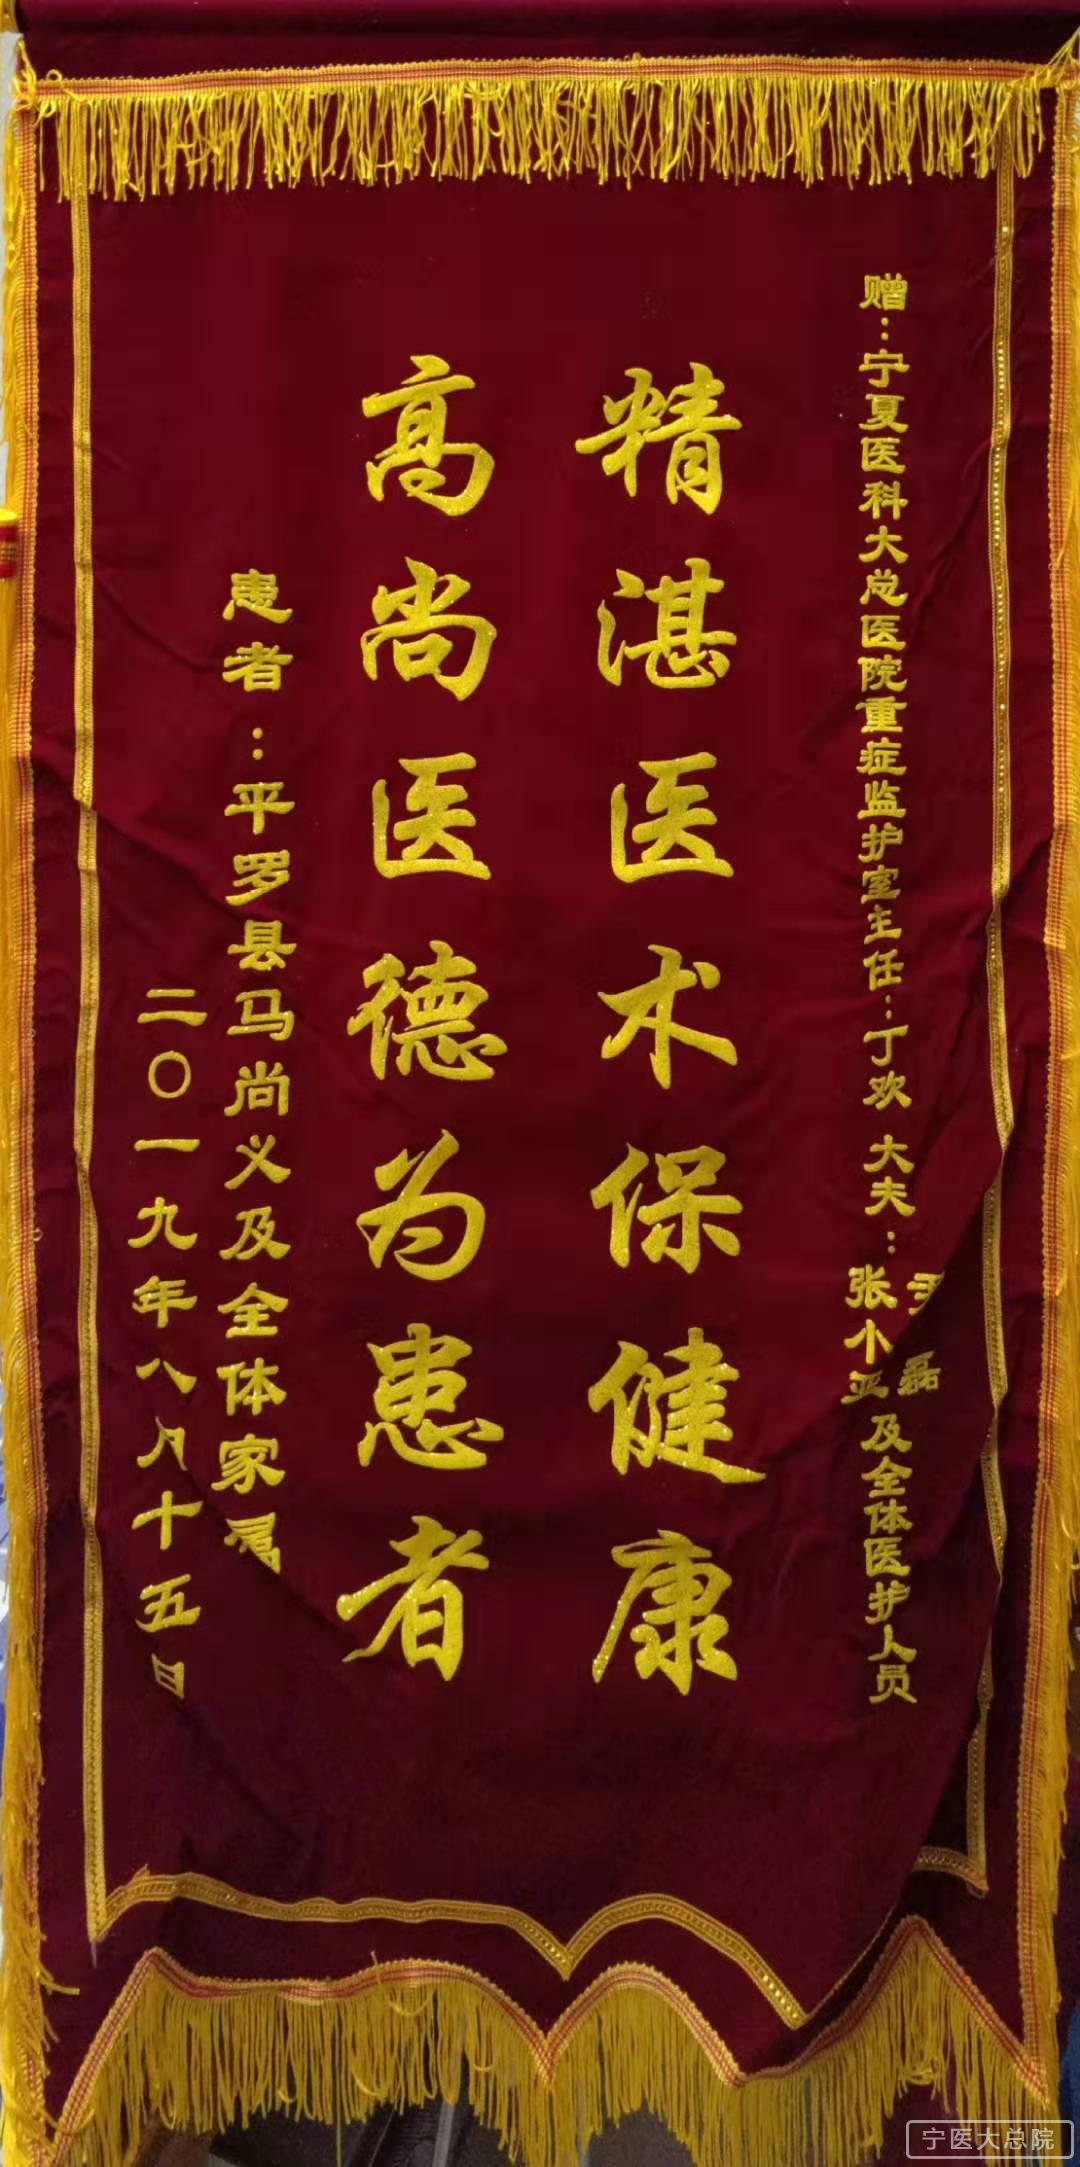 赠：宁夏医科大总医院重症监护室主任：丁欢 大夫：
磊
张小亚
及全体医护人员
精湛医术保健康
高尚医德为患者
患者：平罗县马尚义及全体家属
二〇一九年八月十五日
宁医大总院